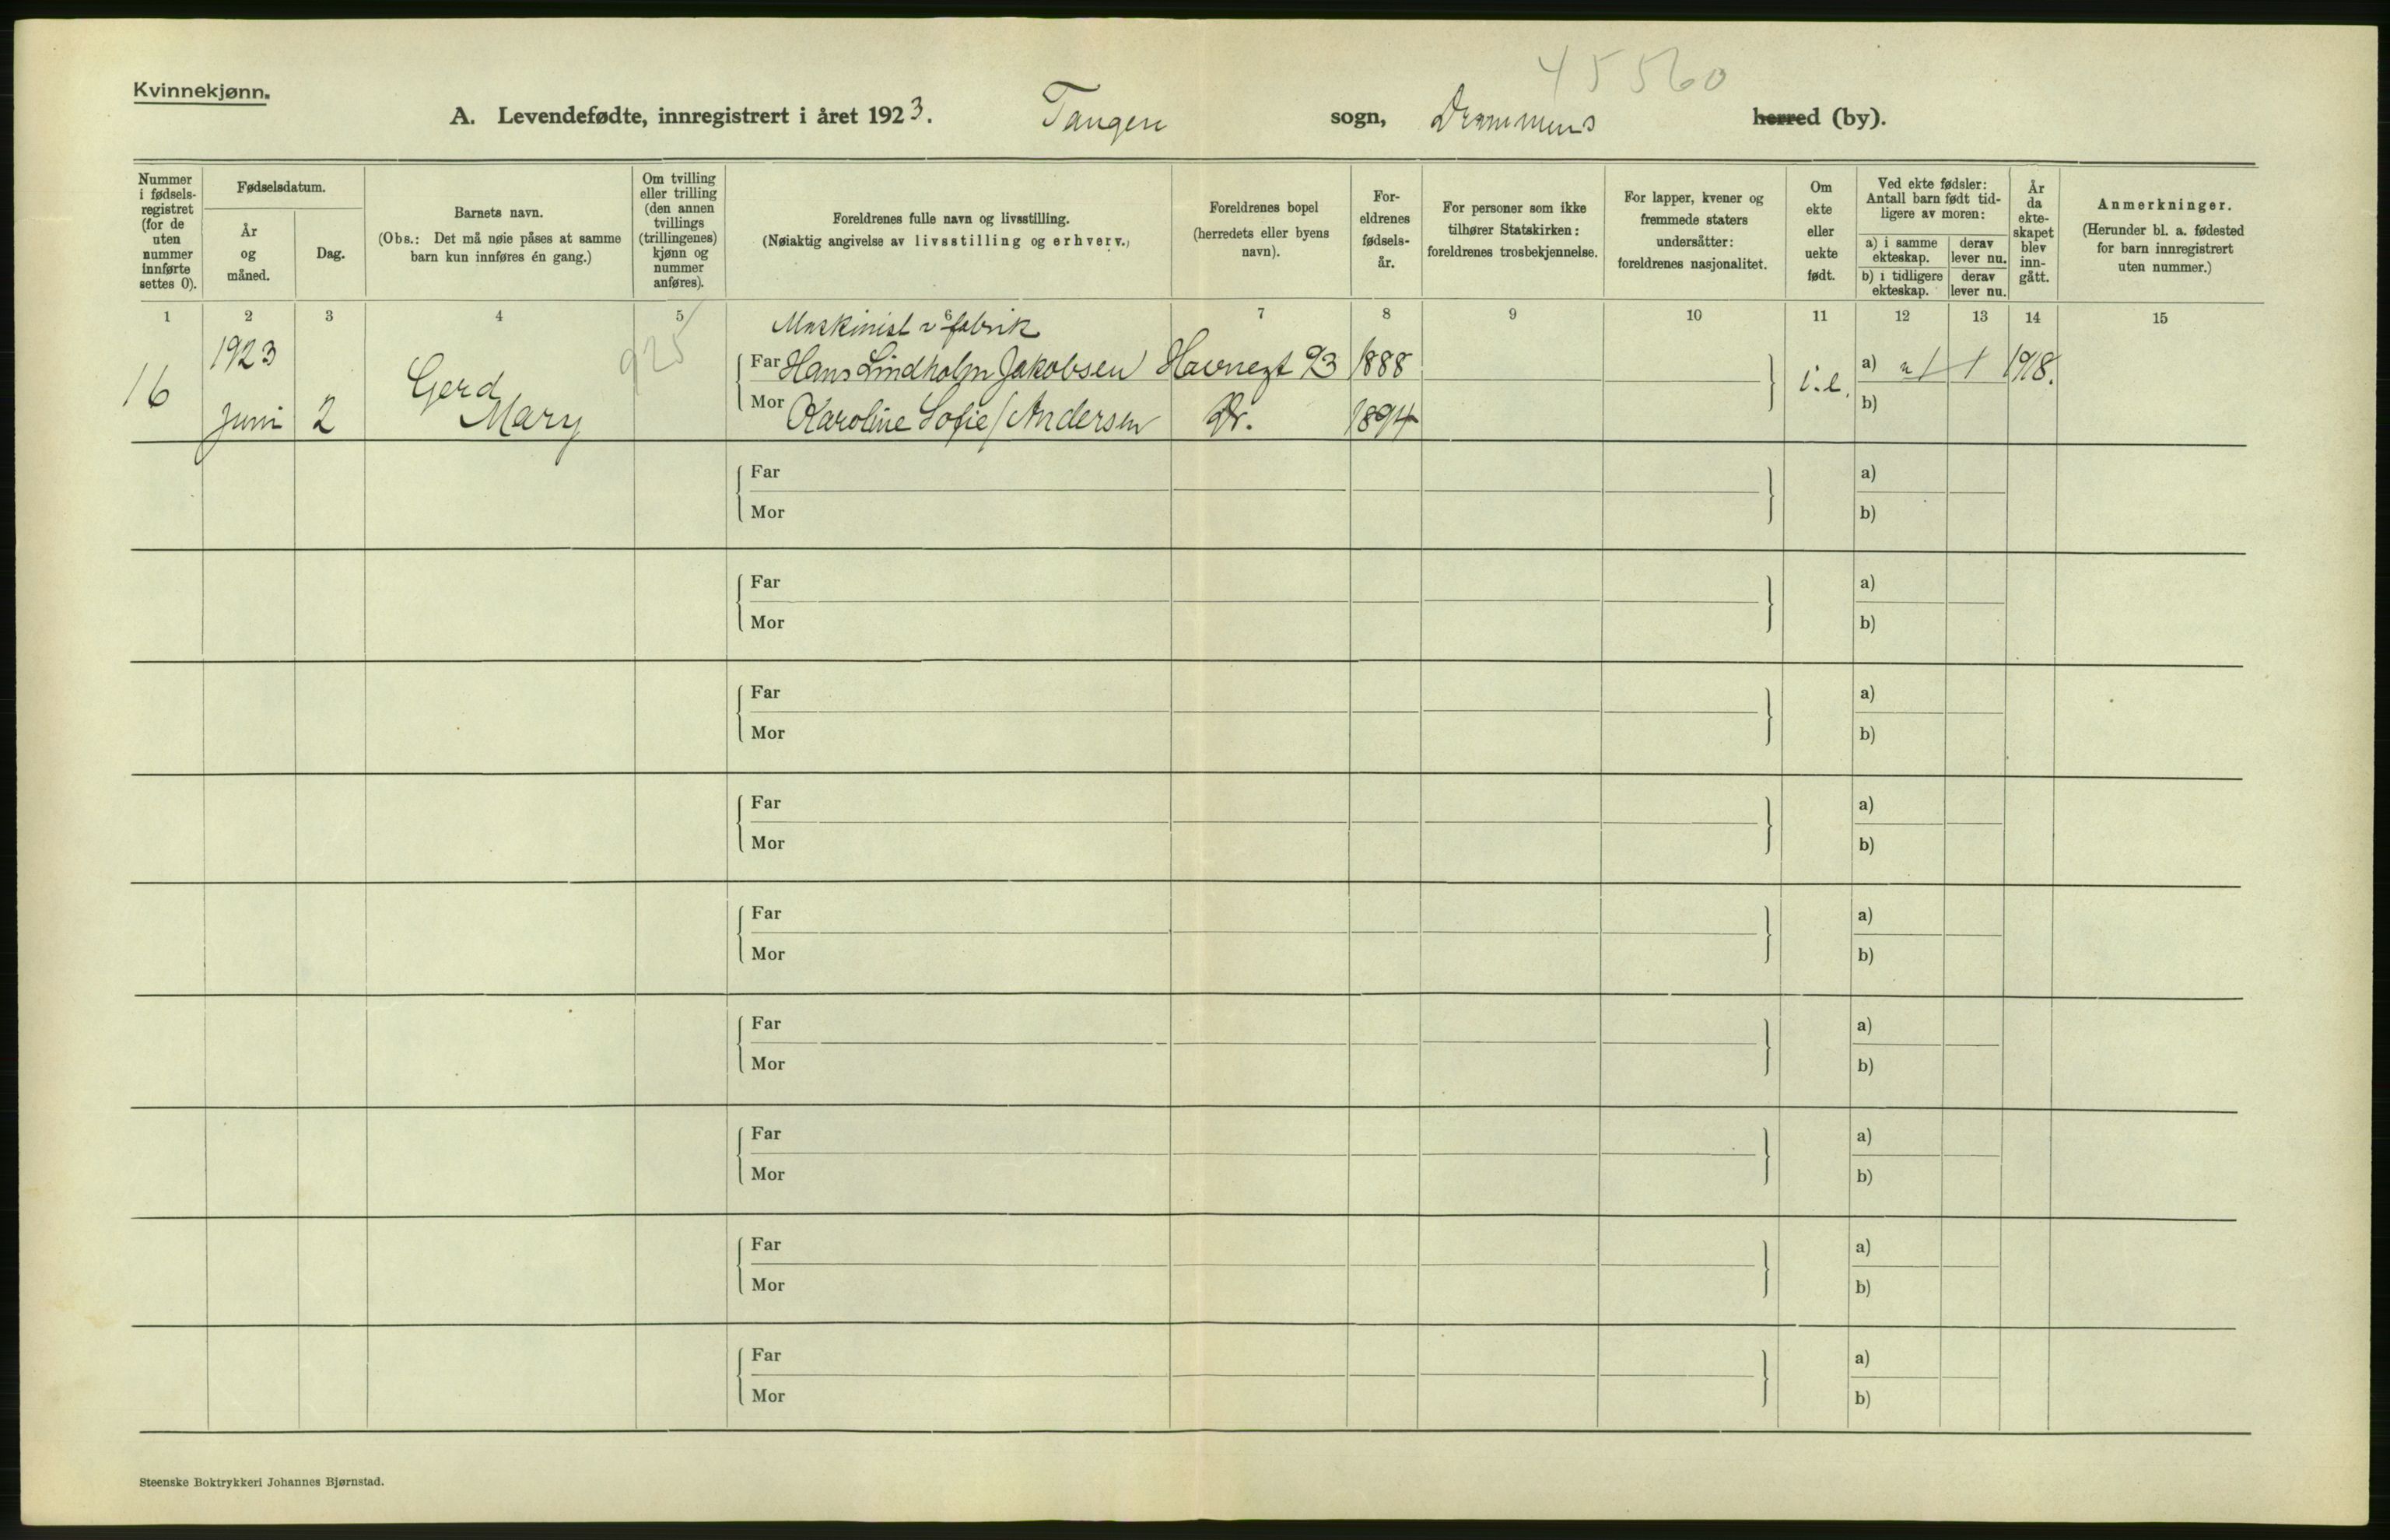 45560
Kvinnekjønn.
A. Levendefødte, innregistrert i året 1923. Tangen sogn, Drammens herred (by).
Nummer i fødsels- registret (for de uten nummer innførte settes 0).
Fødselsdatum.
År og måned.
Dag.
Barnets navn.
(Obs.: Det må nøie påses at samme barn kun innføres én gang.)
Om tvilling eller trilling (den annen tvillings (trillingenes) kjønn og nummer anføres).
Foreldrenes fulle navn og livsstilling.
(Nøiaktig angivelse av livsstilling og erhverv.)
Foreldrenes bopel (herredets eller byens navn).
For- eldrenes fødsels- år.
For personer som ikke tilhører Statskirken: foreldrenes trosbekjennelse.
For lapper, kvener og fremmede staters undersåtter: foreldrenes nasjonalitet.
Om ekte eller uekte født.
Ved ekte fødsler: Antall barn født tid- ligere av moren:
a) i samme ekteskap.
derav lever nu.
b) i tidligere ekteskap.
derav lever nu.
År da ekte- skapet blev inn- gått.
Anmerkninger.
(Herunder bl. a. fødested for barn innregistrert uten nummer.)
1 2 3 4 5 6 7 8 9 10 11 12 13 14 15
925
Maskinist v fabrik
16 1923 Juni 2 Gerd Mary
Far Hans Lindholm Jakobsen Havnegt 93 1888
Mor Karoline Sofie / Andersen Dr. 1894
a) 1 1 1918.
b)
Far a)
Mor b)
Far a)
Mor b)
Far a)
Mor b)
Far a)
Mor b)
Far a)
Mor b)
Far a)
Mor b)
Far a)
Mor b)
Far a)
Mor b)
Far a)
Mor b)
Steenske Boktrykkeri Johannes Bjørnstad.